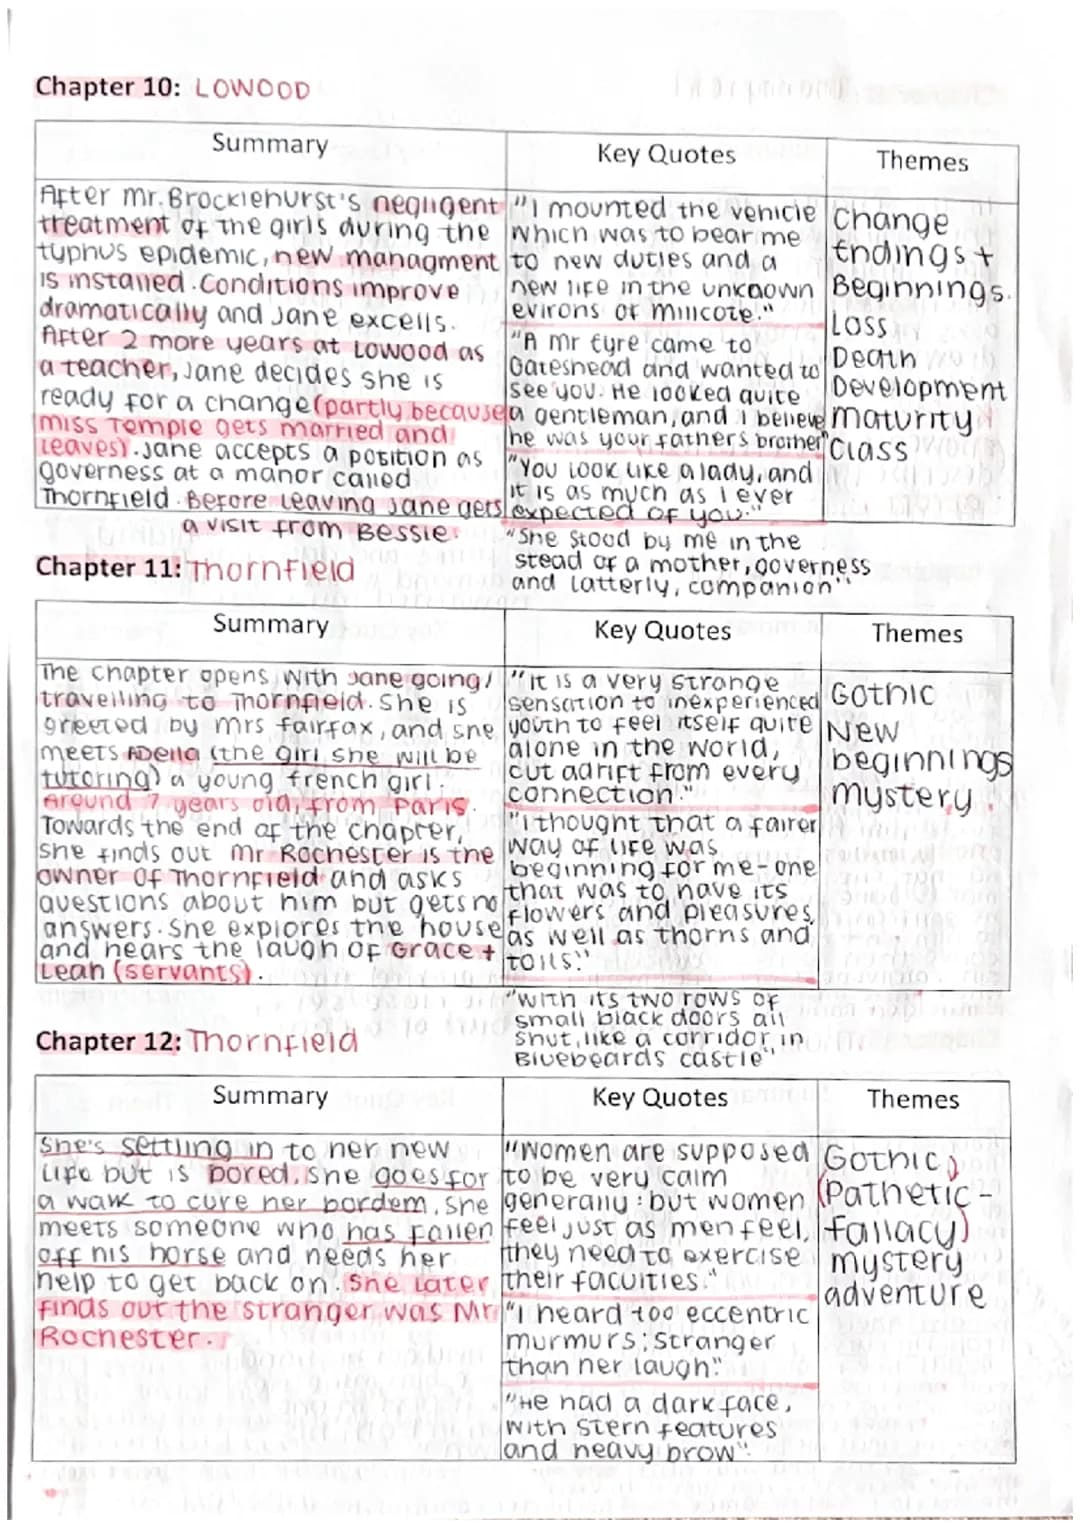 Chapter 10: LOWOOD
Summary
Key Quotes
Themes
After Mr. Brocklehurst's negligent
treatment of the girls during the
typhus epidemic, new managment
is installed. Conditions improve
dramatically and Jane excells.
After 2 more years at Lowood as
a teacher, Jane decides she is
ready for a change (partly because
miss Temple gets married and
leaves). Jane accepts a position as
governess at a manor called
Thornfield. Before leaving Jane gets
a visit from Bessie.
"I mounted the vehicle
which was to bear me
to new duties and a
new life in the unknown
evirons of Millcote."
"A Mr Eyre came to
Gateshead and wanted to
see you. He looked quite
a gentleman, and I believe
he was your fathers brother"
"You look like a lady, and
it is as much as I ever
expected of you."
"She stood by me in the
stead of a mother, governess
and latterly, companion"
Change
Endings +
Beginnings.
Loss
Death
Development
Maturity
Class
Chapter 11: Thornfield
Summary
Key Quotes
Themes
The chapter opens with Jane going/
travelling to Thornfield. She is
greeted by Mrs fairfax, and she
meets Adella (the girl she will be
tutoring) a young french girl
around 7 years old, from Paris.
Towards the end of the chapter,
she finds out Mr Rochester is the
owner of Thornfield and asks
questions about him but gets no
answers. She explores the house
and hears the laugh of Grace +
Leah (servants).
"It is a very strange
sensation to inexperienced
youth to feel itself quite
alone in the world,
cut adrift from every
connection."
"I thought that a fairer
way of life was
beginning for me - one
that was to have its
flowers and pleasures,
as well as thorns and
toils."
"with its two rows of
small black doors all
shut, like a corridor in
Bluebeards castle"
Gothic
New
beginnings
mystery.
Chapter 12: Thornfield
Summary
Key Quotes
Themes
She's settling in to her new
life but is bored. She goes for
a walk to cure her bordem. She
meets someone who has fallen
off his horse and needs her
help to get back on. She later
finds out the stranger was Mr
Rochester.
"Women are supposed
to be very calm
generally: but women
feel just as men feel,
they need to exercise
their faculities."
"I heard too eccentric
murmurs; stranger
than her laugh."
"He had a dark face,
with stern features
and heavy brow".
Gothic
(Pathetic-
fallacy)
mystery
adventure